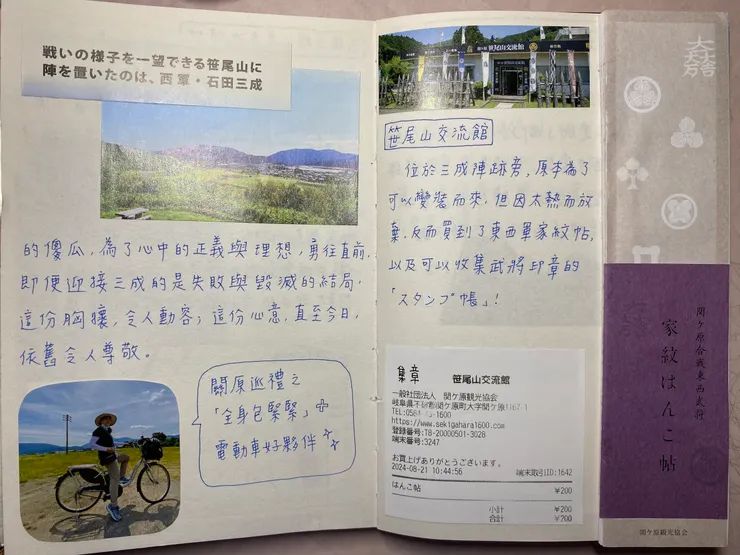 戦いの様子を一望できる笹尾山に
陣を置いたのは、西軍・石田三成
的傻瓜,為了心中的正義與理想,勇往直前,
即便迎接三成的是失敗與毀滅的結局。
這份胸懷,令人動容;這份心意,直至今日,
依舊令人尊敬。
關原巡禮之
「全身包緊緊」
電動車好夥伴
笹尾山交流館
笹尾山交流館
位於三成陣跡旁,原本為了
可以變裝而來,但因太熱而放
棄,反而買到了東西軍家紋帖,
以及可以收集武將印章的
「スタンプ帳」!
集章
笹尾山交流館
一般社団法人 関ケ原観光協会
岐阜県不破郡関ケ原町大字関ケ原1167-1
-1600
https://www.sekigahara1600.com
登録番号:T8-20000501-3028
端末番号:3247
お買上げありがとうございます。
2024-08-21 10:44:56 端末取引ID:1642
はんこ帖 ¥200
小計 ¥200
合計 ¥200
大一大万大吉
関ケ原合戦東西武将
家紋はんこ帖
関ケ原観光協会